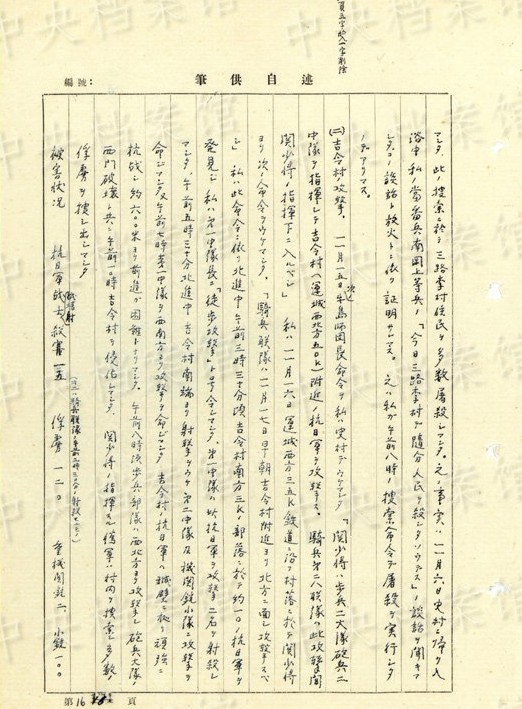 頁五字加入一字削除
編號：
筆供自述
マシタ、此ノ捜索ニ於テ三路李村住民ヲ多数屠殺シマシタ。之ノ事実ハ一一月六日史村ニ帰リ入
浴中私ノ当番兵南岡上等兵ノ「今日三路李村デ随分人民ヲ殺シタソウデスヨ」ノ談話ヲ聞キマ
シタコノ談話ト放火トニ依リ証明サレマス。之ハ私ガ午前八時ノ捜索命令デ屠殺ヲ実行シタ
ノデアリマス。
(二)吉令村攻撃、一一月一五日牛島師団長命令ヲ私ハ史村デウケマシタ「関少将ハ歩兵二大隊砲兵二
中隊ヲ指揮シテ吉令村(運城西北方五〇K)附近ノ抗日軍ヲ攻撃ス。騎兵第二〇联隊ハ此攻撃間
関少将ノ指揮下ニ入ルベシ」私ハ一一月一六日運城西方三五K鉄道ニ沿フ村落ニ於テ関少将
ヨリ次ノ命令ヲウケマシタ。「騎兵联隊ハ一一月一七日早朝吉令村附近ヨリ北方ニ面シ攻撃スベ
シ」私ハ此命令ニ依リ北進中午前三時三十分頃吉令村南方三K部落ニ於テ約一〇ノ抗日軍ヲ
発見シ私ハ第一中隊長ニ「徒歩攻撃」ト号令シマシタ。第一中隊ハ此抗日軍ヲ攻撃シ二名ヲ射殺シ
マシタ、午前五時三十分北進中吉令村南端ヨリ射撃ヲウケ第二中隊及機関銃小隊ニ攻撃ヲ
命ジマシタ又午前七時第一中隊ヲ西南方ヨリ攻撃ヲ命ジマシタ吉令村ノ抗日軍ハ城壁ニ拠リ頑強ニ
抗戦シ約六〇〇米ヨリ前進ガ困難トナリマシタ。午前八時歩兵部隊ハ西北方ヨリ攻撃シ砲兵大隊
西門破壊ト共ニ午前一〇時吉令村ヲ侵佔シマシタ、関少将ノ指揮スル侵軍ハ村内ヲ捜索シ多数
俘虜ヲ捜シ出シマシタ
被害状况　抗日軍战士殺害一五　俘虜一二〇　重機関銃二、小銃一〇〇
第16頁